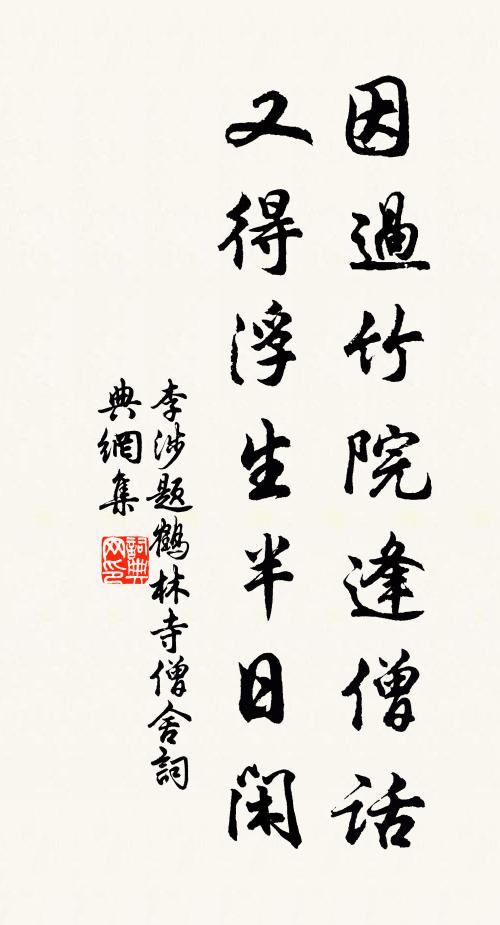 因過竹院逢僧話
又得浮生半日閑
李涉題鶴林寺僧舍詞
典網集
詞典
网印